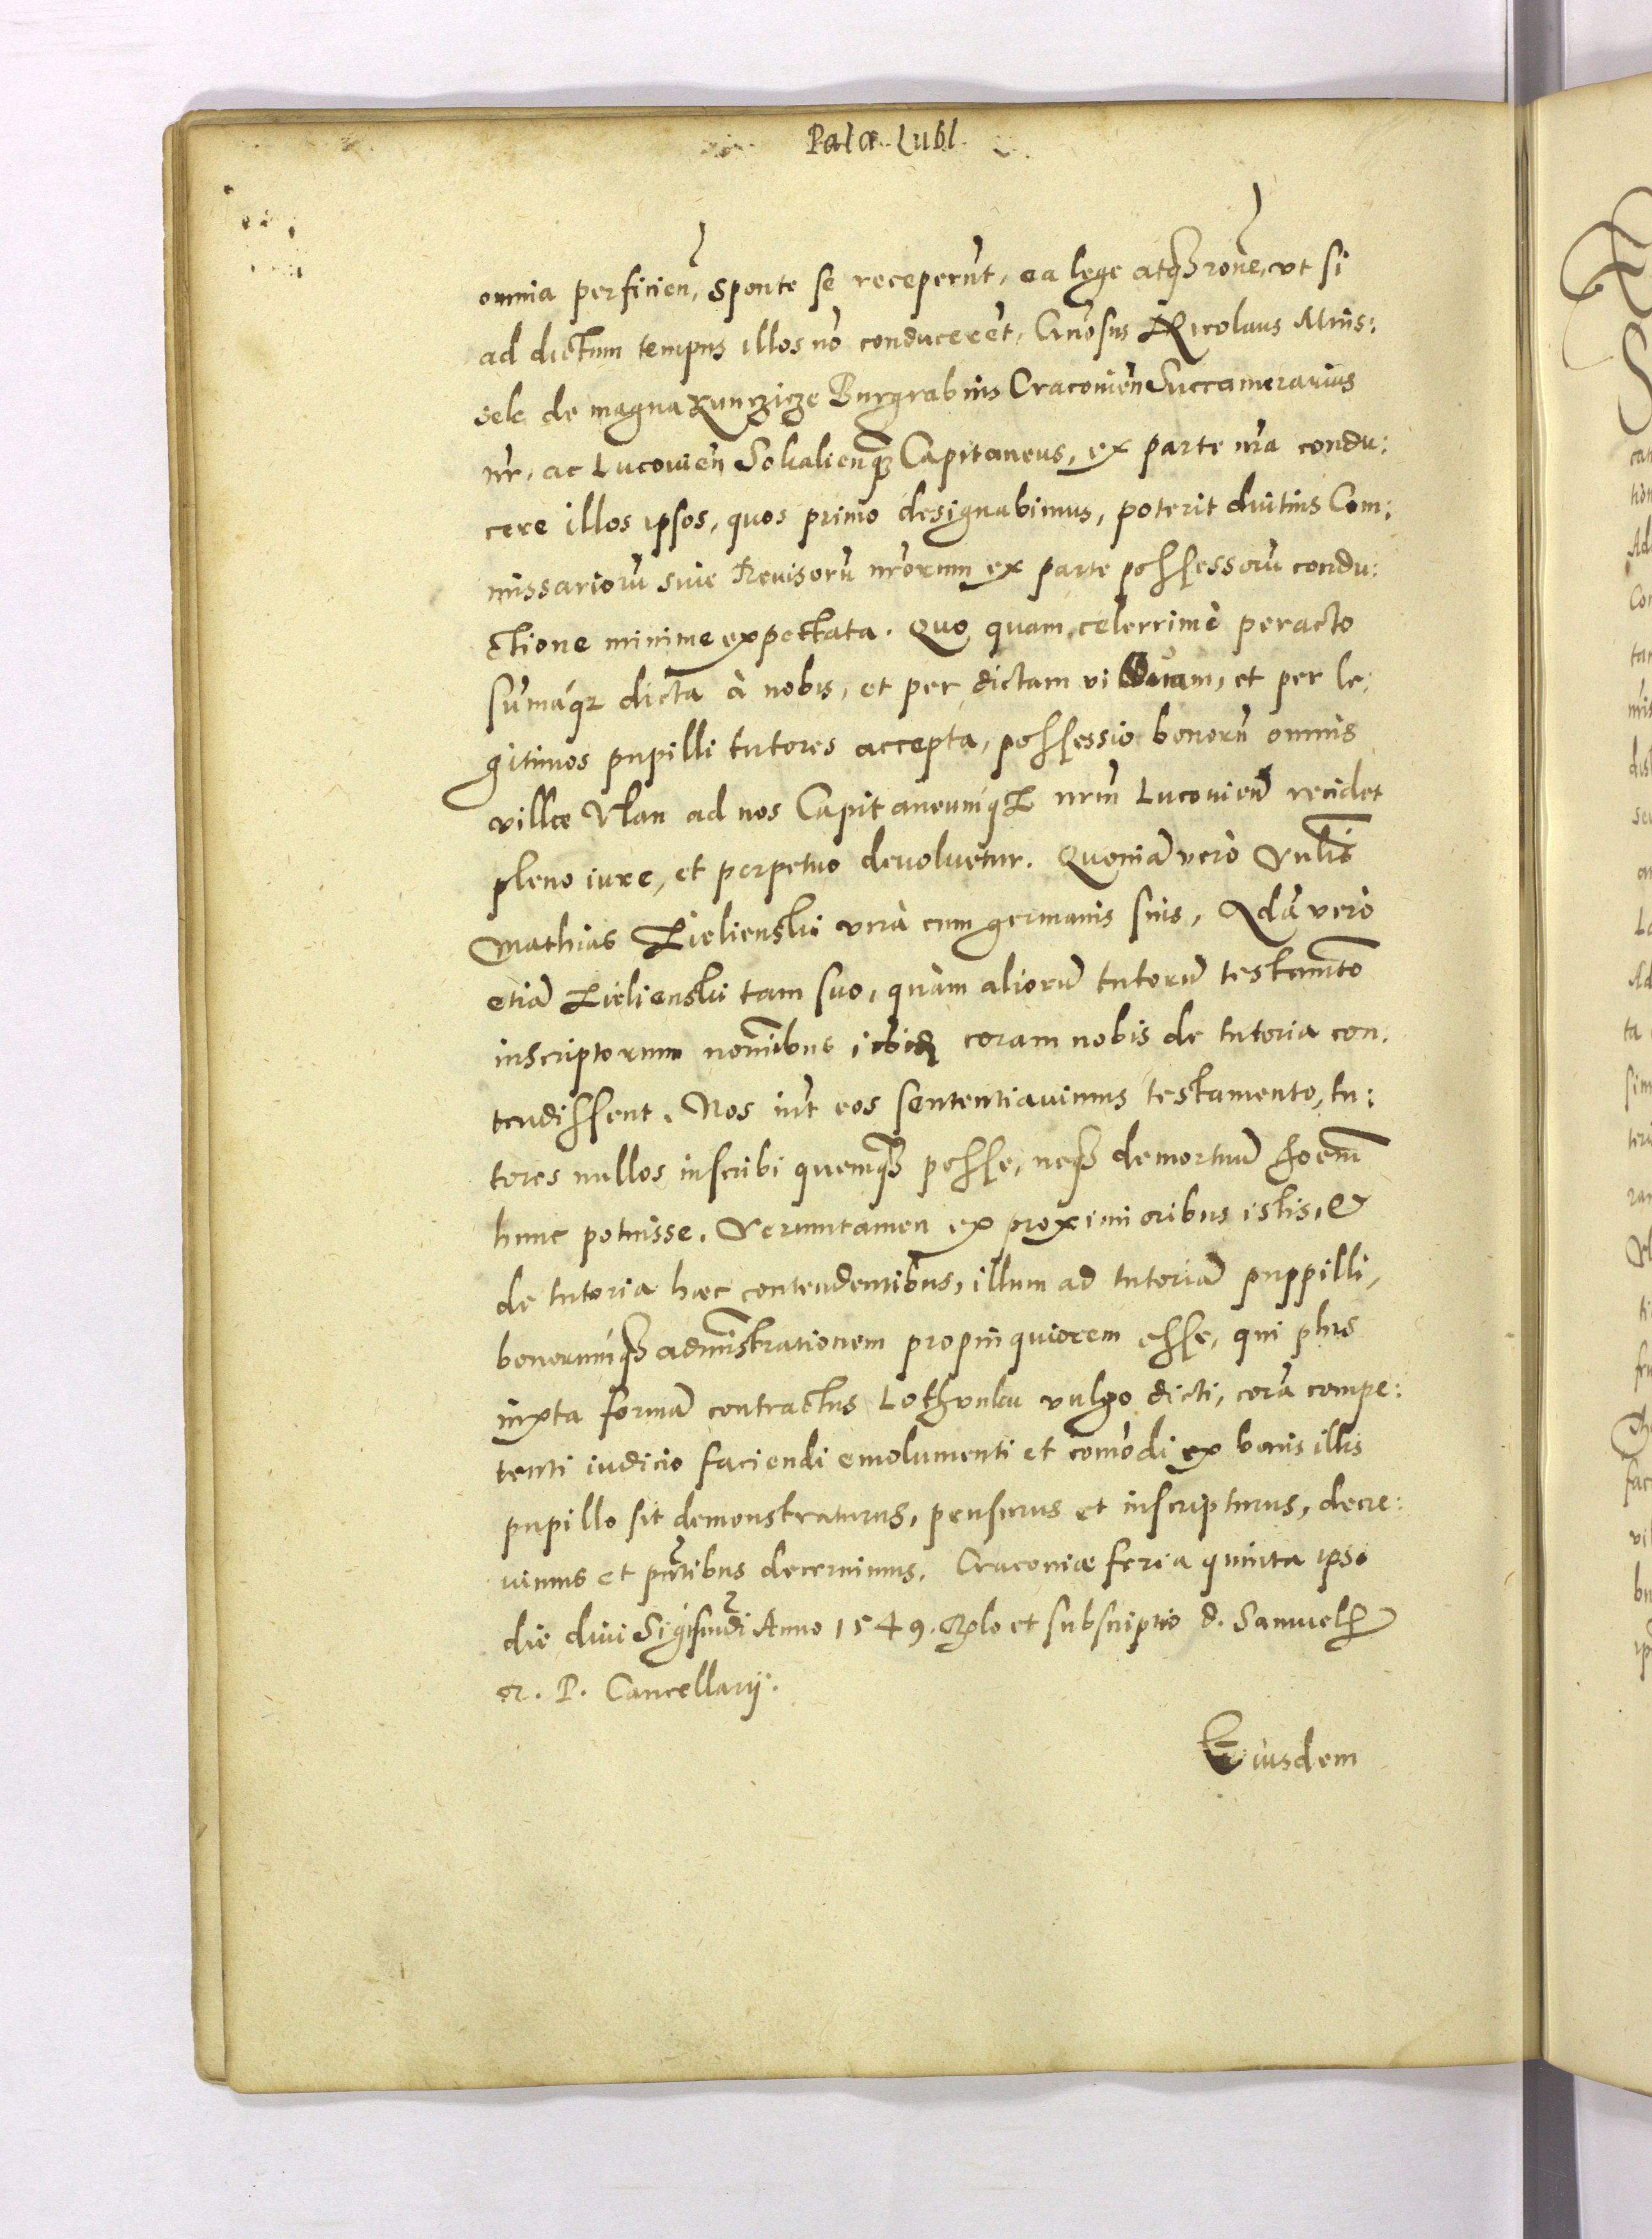 Palæ. Lubl.
omnia perficien, sponte se receperūt, ea lege atq̃ rōne, vt si
ad dictum tempus illos nō conducerēt, Gnōsus Nicolaus Mÿs:
zek de magna Runczicze Burgrabius Cracouien̄ Succamerarius
nr̄, ac Lucouien̄ Sokalienq̃ Capitaneus, ex parte nr̄a condu:
cere illos ipsos, quos primo designabimus, poterit diutius Com:
missariorū siue Reuisorū nr̄orum ex parte possessorū condu:
ctione minime expectata. Quo quam celerrimè peracto
sum̄áq; dicta à nobis, et per dictam viduam, et per le:
gitimos pupilli tutores accepta, possessio bonorū omnis
villæ Vlan ad nos Capitaneumq́; nr̄m Lucouien̄ recidet
pleno iure, et perpetuo deuoluetur. Quoniā verò Vnlis̄
Mathias Zielienski vnà cum germanis suis, Qdā verò
etiā Zielienski tam suo, quàm aliorū tutorū testam̄to
inscriptorum nom̄ibus ibid coram nobis de tutoria con:
tendissent. Nos inr̄ eos sententiauimus testamento, tu:
tores nullos inscribi quemq̃ posse, neq̃ demortuū hoēm
hunc potuisse. Veruntamen ex proximioribus istis, &
de tutoria hac contendentibus, illum ad tutoriā puppilli,
bonorumq́; adm̄istrationem propinquiorem esse, qui plus
iuxta formā contractus Lothvnku vulgo dicti, corā compe:
tenti iudicio faciendi emolumenti et com̄odi ex bonis illis
pupillo sit demonstraturus, pensurus et inscripturus, decre:
uimus et pn̄tibus decernimus. Cracouiæ feria quinta ipso
die diui Sigism̄di Anno 1549. Relo et subscriptio d. Samuel
R. P. Cancellarij.
Eiusdem